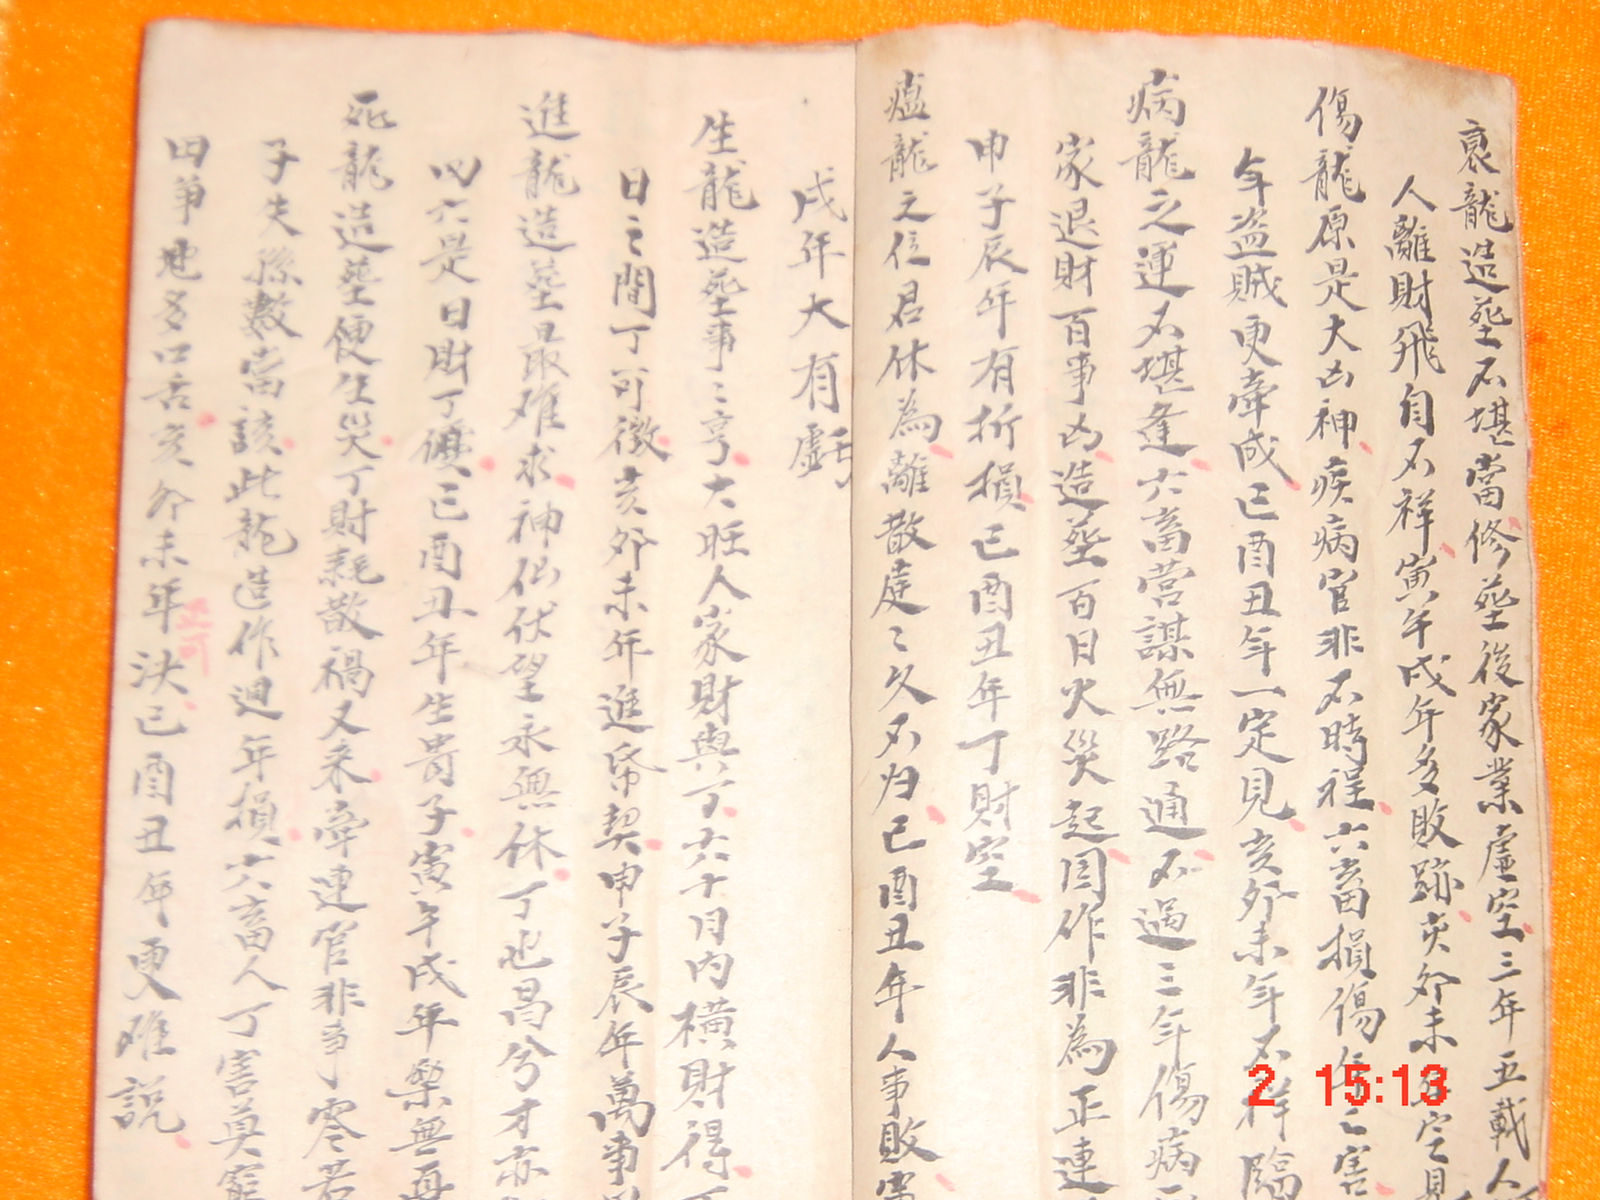 衰龍造塟不堪當修塟後家業虛空三年五載人
人離財飛自不祥寅午戌年多敗跡亥卯未年定見
傷龍原是大凶神疾病官非不時程六畜損傷年之害
年盜賊更牽成巳酉丑年一定見亥卯未年不祥臨
病龍之運不堪逢六畜營謀無路通不過三年傷病
家退財百事凶造塟百日火災起因作非為正連
申子辰年有折損巳酉丑年丁財空
瘟龍之位君休為離散庭々久不归巳酉丑年人事敗
戌年大有虧
生龍造塟事々亨大旺人家財與丁六十日内横財得
日之間丁可徵亥卯未年進帋契申子辰年萬事
進龍造塟最难求神仙伏望永無休丁也昌兮才亦
四六是日財丁儥巳酉丑年生貴子寅午戌年樂無再
死龍造塟便生災丁財耗散禍又来牽連官非事零若
子失孫數當該此龍造作週年損六畜人丁害莫
田爭地多口舌亥卯未年決巳酉丑年更难說
2 15:13